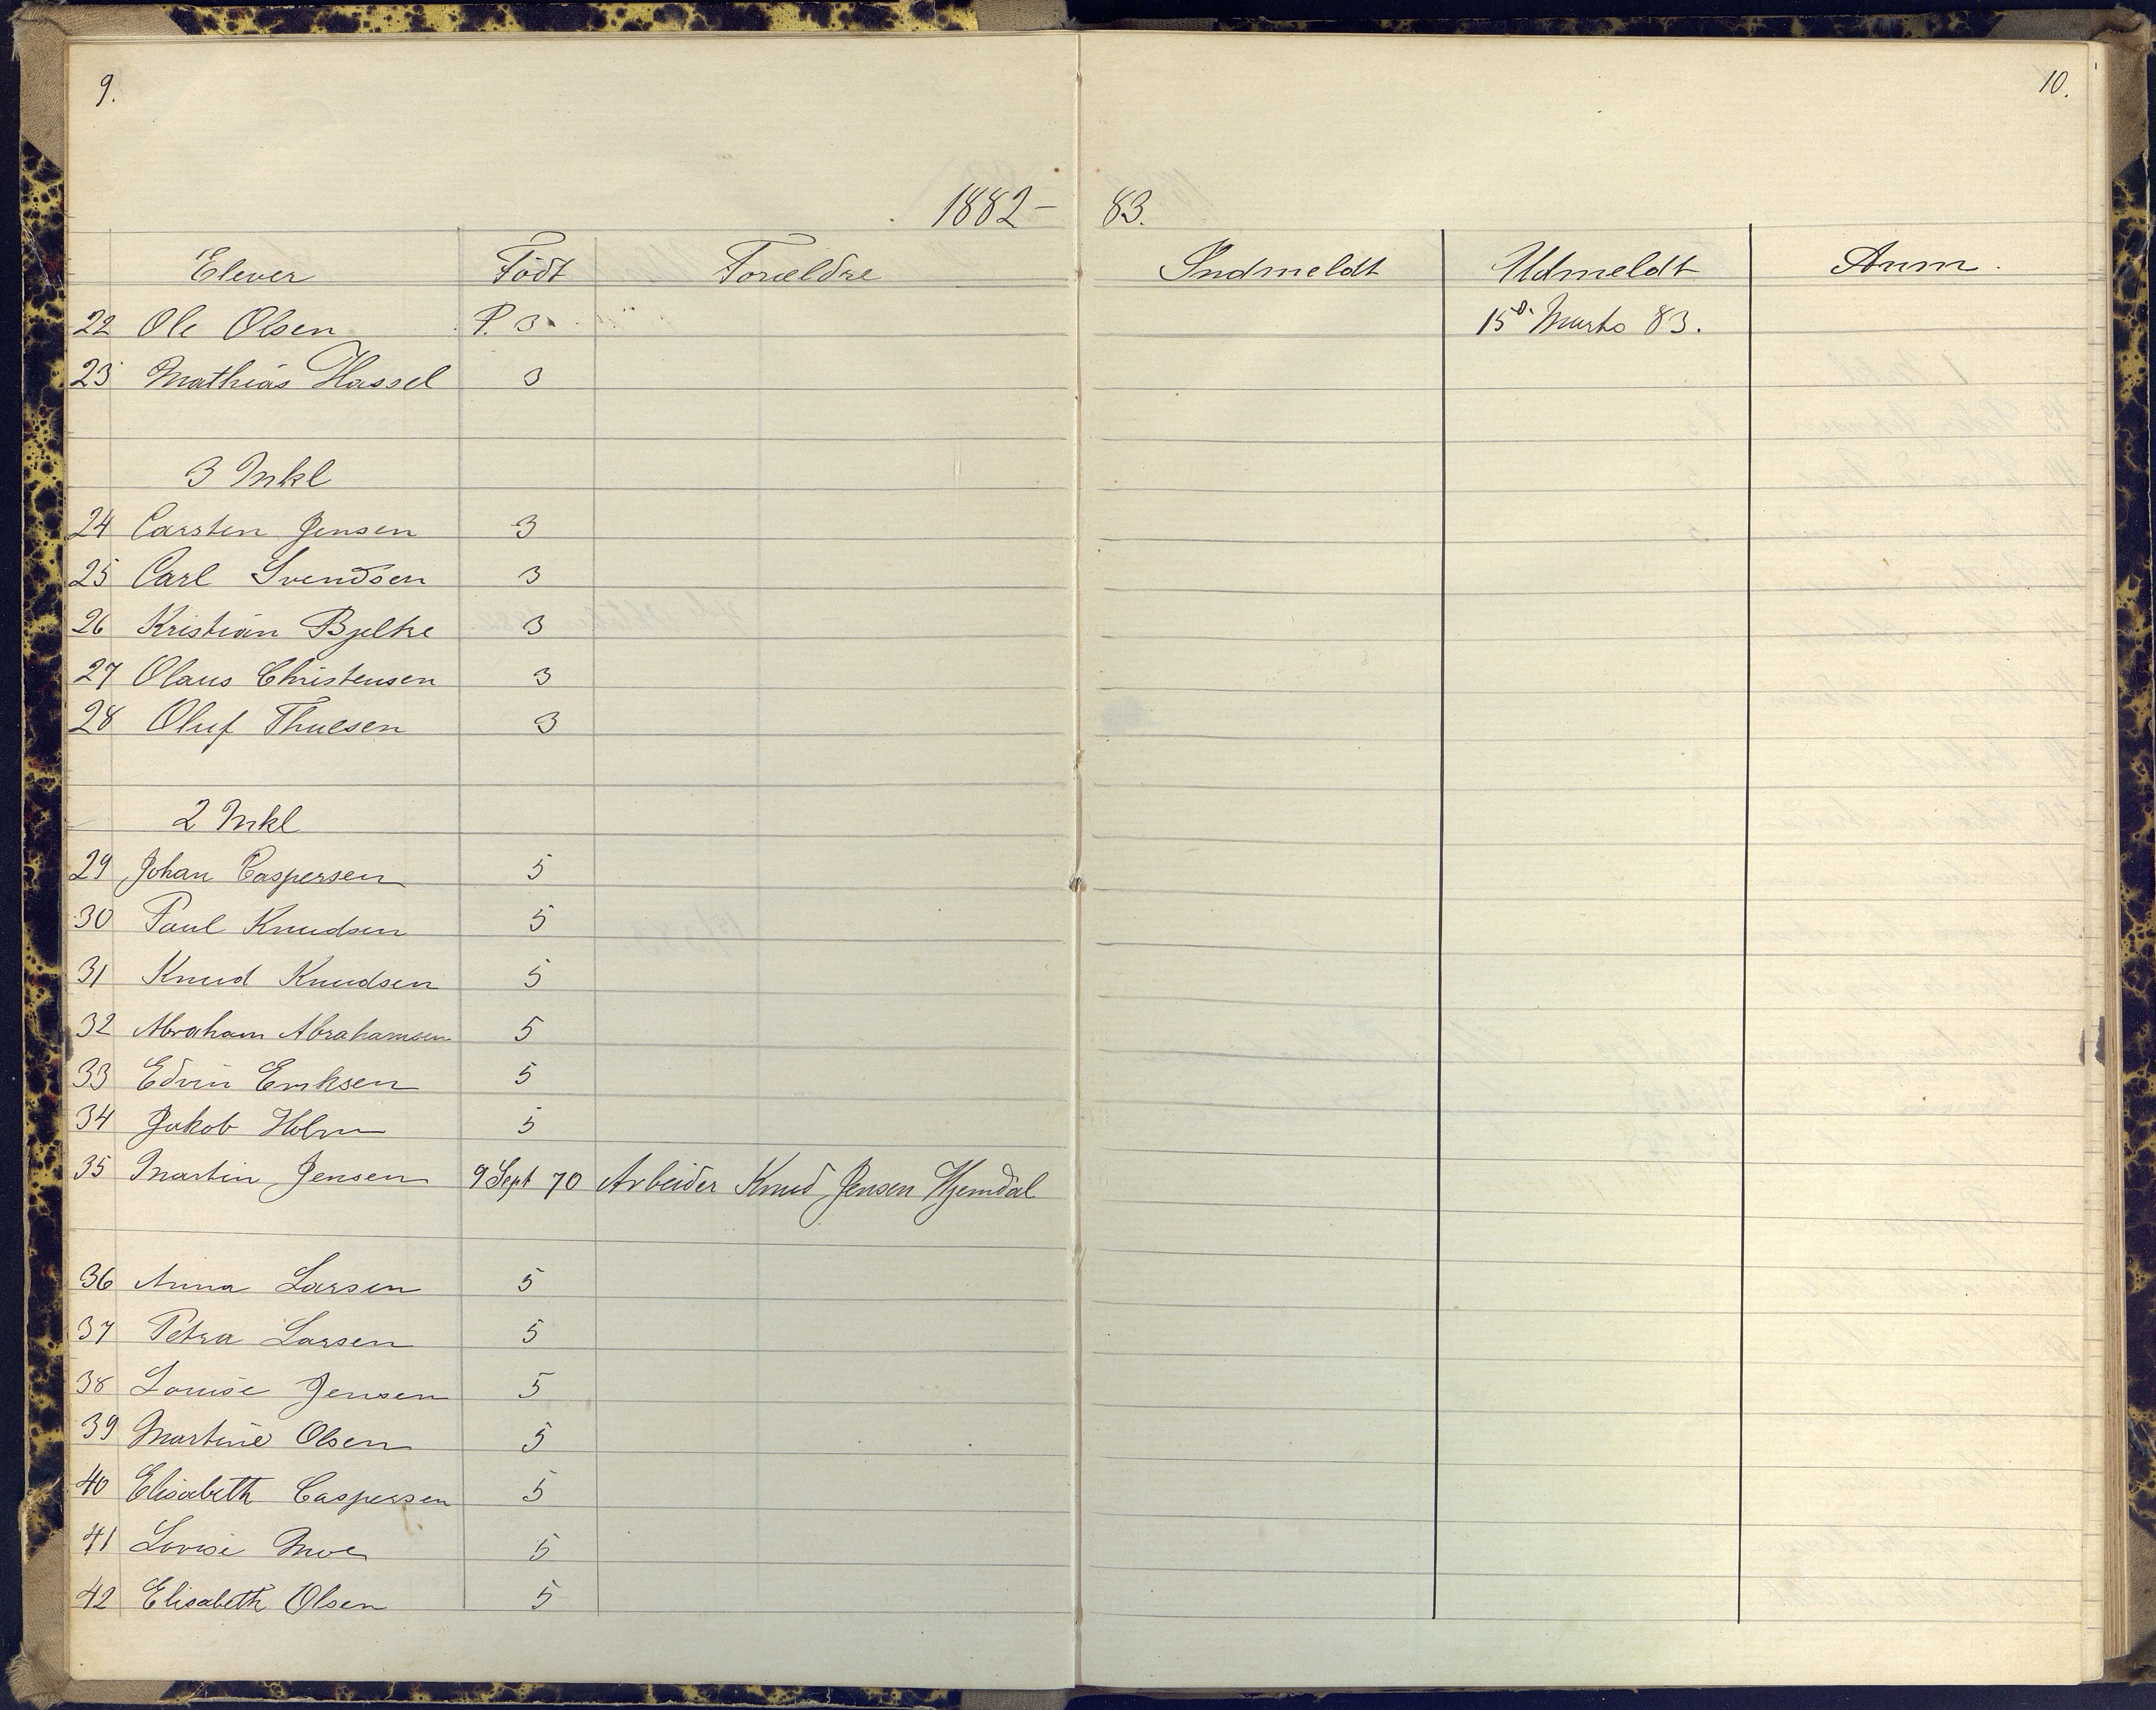 9.
10.
1882- 83.
Elever Födt Forældre Indmeldt Udmeldt Anm.
22 Ole Olsen P. 3 15de Marts 83.
23 Mathias Hassel 3
3 Mkl
24 Carsten Jensen 3
25 Carl Svendsen 3
26 Kristian Bjelke 3
27 Olaus Christensen 3
28 Oluf Thuesen 3
2 Mkl
29 Johan Caspersen 5
30 Paul Knudsen 5
31 Knud Knudsen 5
32 Abraham Abrahamsen 5
33 Edvin Eriksen 5
34 Jakob Holm 5
35 Martin Jensen 9 Sept 70 Arbeider Knud Jensen Hjemdal
36 Anna Larsen 5
37 Petra Larsen 5
38 Louise Jensen 5
39 Martine Olsen 5
40 Elisabeth Caspersen 5
41 Lovise Moe 5
42 Elisabeth Olsen 5